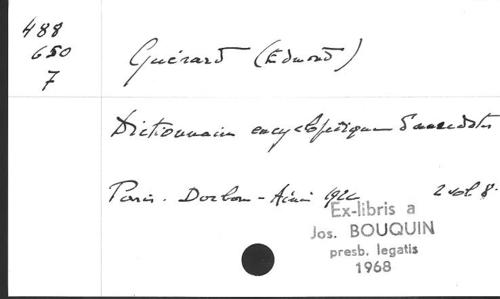 488
650
7
Guérard (Edmond)
Dictionnaire encyclopédique d'anecdotes
Paris. Dorbon-Ainé 192 2 vol 8°
Ex-libris a
Jos. BOUQUIN
presb. legatis
1968